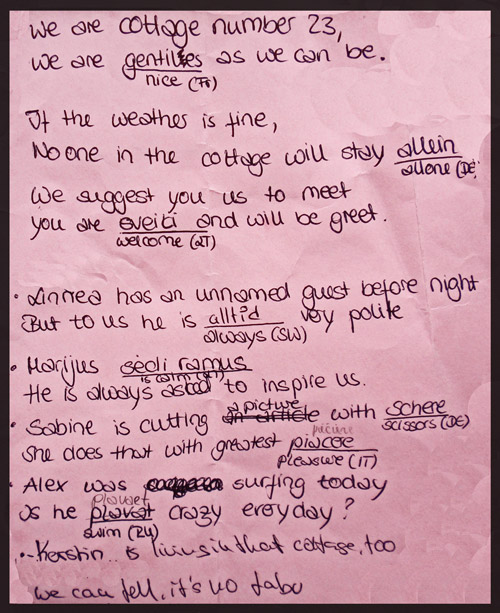 we are cottage number 23,
we are gentilles as we can be.
nice (Fr)
If the weather is fine,
No one in the cottage will stay allein
allone (DE)
We suggest you us to meet
you are sveiki and will be greet.
welcome (LT)
• Linnea has an unnamed guest before night
But to us he is alltid very polite
always (SW)
• Marijus sėdi ramus
is calm (LT)
He is always to inspire us.
a picture
• Sabine is cutting an article with schere
scissors (DE)
picture
she does that with greatest piacere
pleasure (IT)
• Alex was surfing today
plavaet
is he crazy everyday?
swim (RU)
• Kerstin is living in that cottage, too
we can tell, it's no tabu